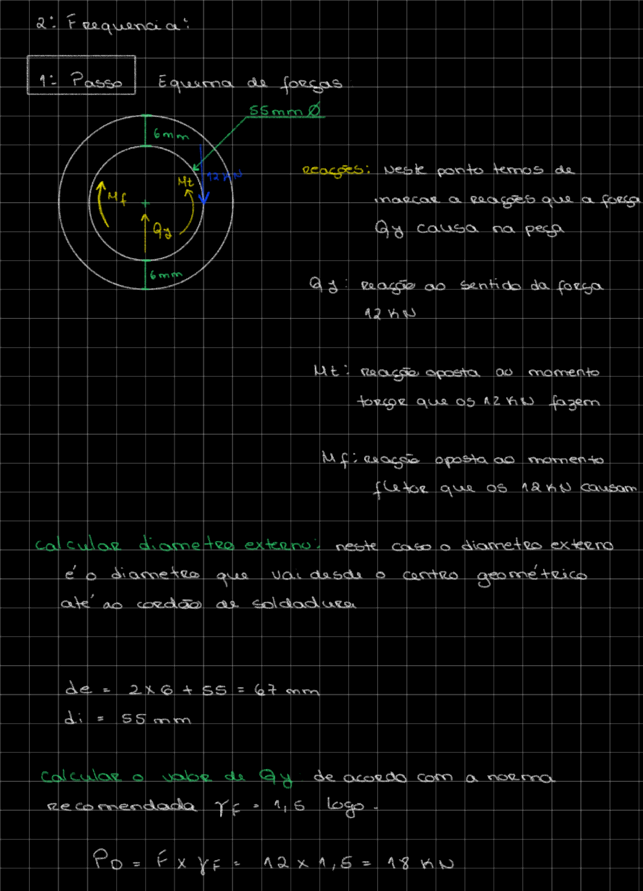 2ª Frequencia:
1º Passo Equema de forças
55mm Ø
6mm
12 KN
Mt
Mf
Qy
6mm
Reações: Neste ponto temos de
marcar a reações que a força
Qy causa na peça
Qy: Reação ao sentido da força
12 KN
Mt: reação oposta ao momento
torçor que os 12 KN fazem
Mf: reação oposta ao momento
fletor que os 12 KN causam
calcular diametro externo: neste caso o diametro externo
é o diametro que vai desde o centro geométrico
até ao cordão de soldadura
de = 2x6 + 55 = 67 mm
di = 55 mm
calcular o valor de Qy de acordo com a norma
recomendada γF = 1,5 logo.
PD = F x γF = 12 x 1,5 = 18 KN